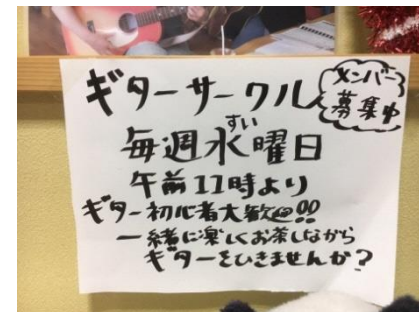 ギターサークル
メンバー
募集中
毎週水曜日
すい
午前11時より
ギター初心者大歓迎!!
一緒に楽しくお茶しながら
ギターをひきませんか?